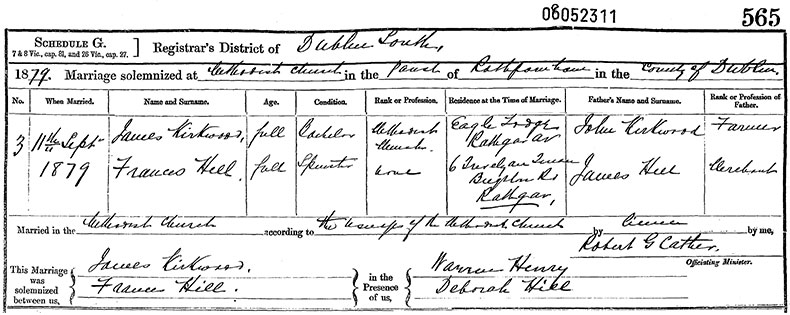 08052311
565
SCHEDULE G.
7 & 8 Vic., cap. 81, and 26 Vic., cap. 27.
Registrar's District of Dublin South,
1879. Marriage solemnized at Methodist Church in the Parish of Rathfarnham in the County of Dublin
No. When Married. Name and Surname. Age. Condition. Rank or Profession. Residence at the Time of Marriage. Father's Name and Surname. Rank or Profession of Father.
3 11th Sept 1879 James Kirkwood, full Bachelor Methodist Minister Eagle Lodge Rathgar Av John Kirkwood Farmer
Frances Hill. full Spinster none 6 Brighton Rd Rathgar, James Hill Merchant
Married in the Methodist Church according to the usages of the Methodist Church by license by me,
Robert G Cather.
Officiating Minister.
This Marriage was solemnized between us, James Kirkwood. Frances Hill. in the Presence of us, Warren Henry Deborah Hill